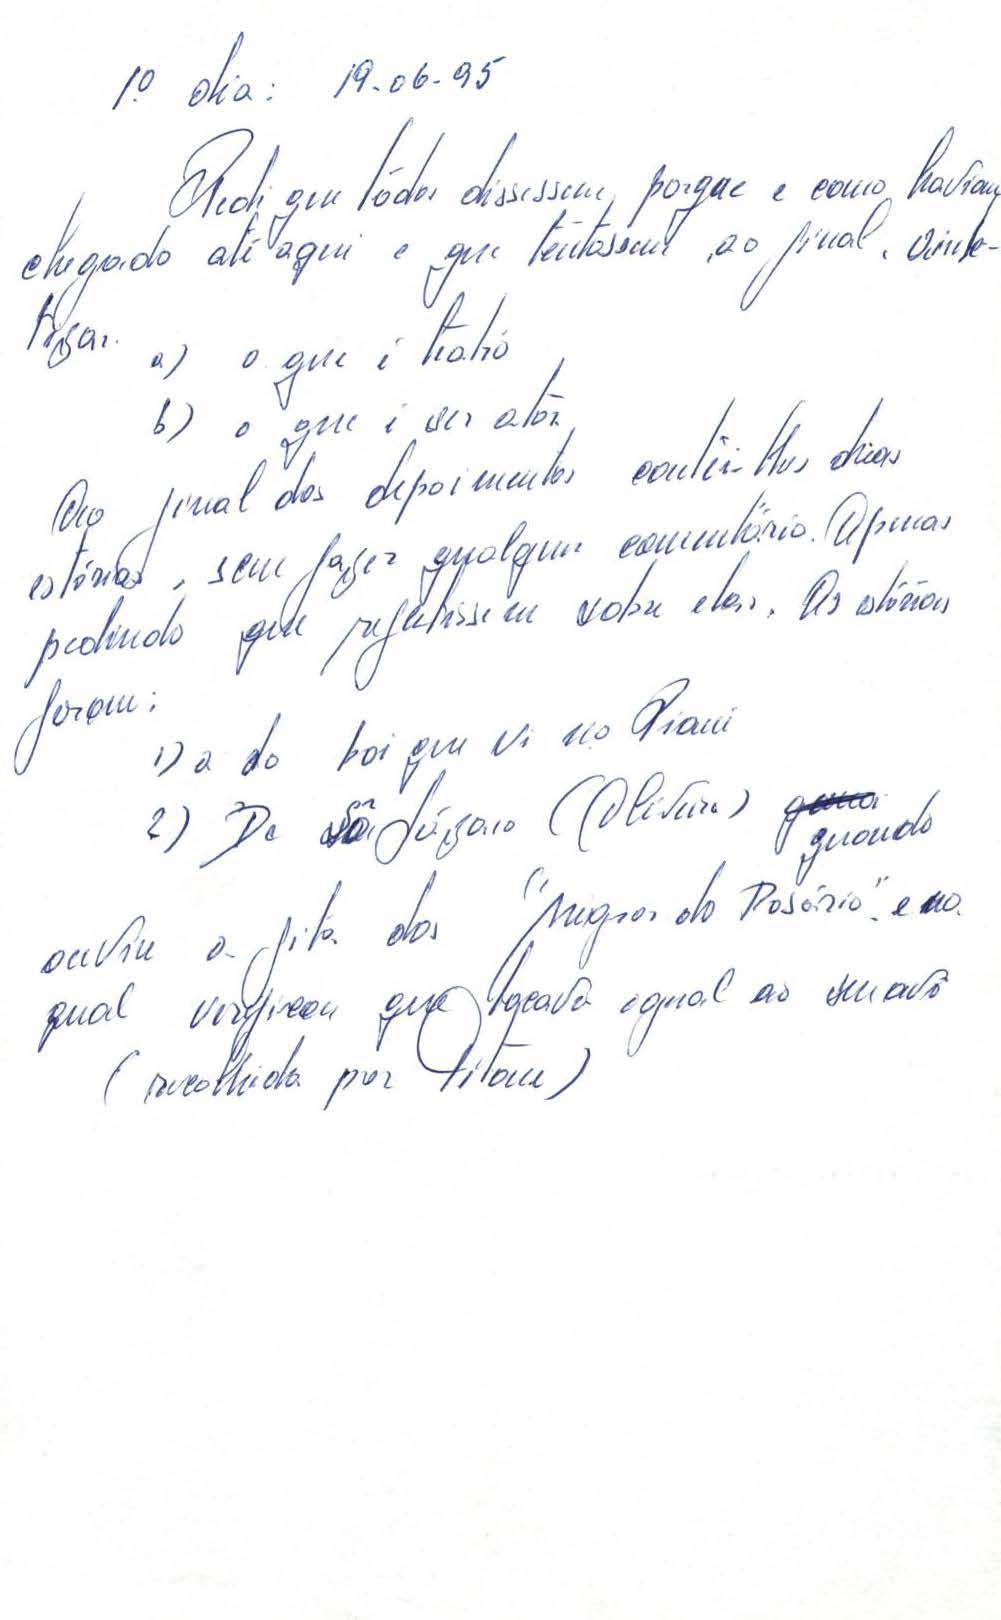 1º dia: 19-06-95
Pedi que todos dissessem, porque e como haviam
chegado até aqui e que tentassem, ao final, sinte-
tizar.
a) o que é teatro
b) o que é ser ator
Ao final dos depoimentos contei-lhes duas
estórias, sem fazer qualquer comentário. Apenas
pedindo que refletissem sobre elas. As estórias
foram:
1) a do boi que vi no Piaui
2) De Lázaro (Oliveira)
quando
ouviu a fita dos "Negros do Rosário" e na
qual verificou que tocava igual ao seu avô
(recolhida por Titane)